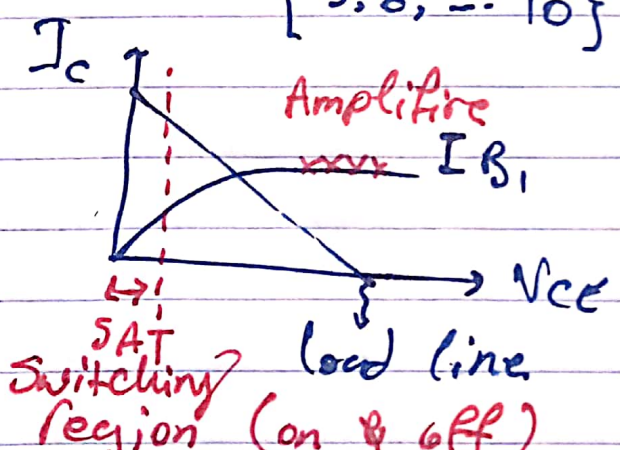 [ 5, 6, -- 10 }
Ic
Amplifire
IB1
VCE
SAT
load line
Switching
region (on & off)